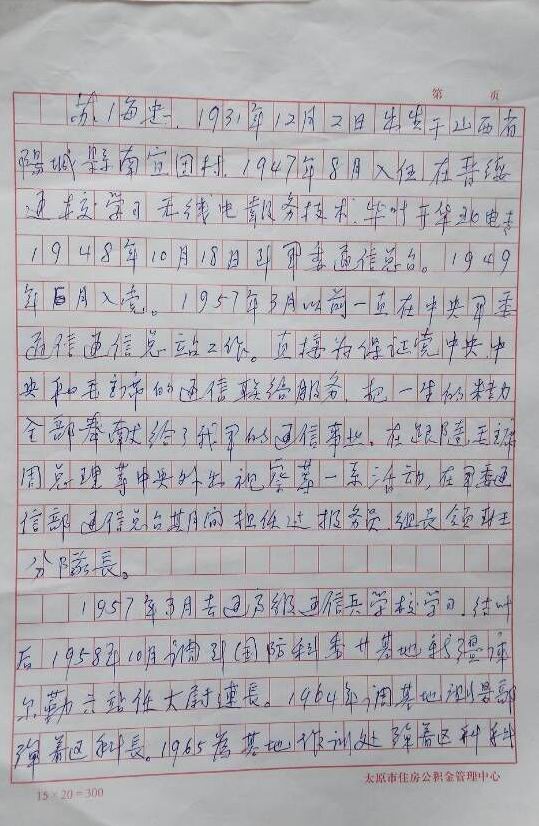 第 页
苏海忠，1931年12月2日出生于山西省
陽城縣南宜固村，1947年8月入伍，在晋绥
通校学习无线电報务技术，毕叶于华北电专
1948年10月18日到军委通信总台。1949
年6月入党。1957年3月以前一直在中央军委
通信通信总站工作。直接为保证党中央，中
央和毛主席的通信联络服务，把一生的精力
全部奉献给了我军的通信事业，在跟随毛主席
周总理等中央外出视察等一系活动，在军委通
信部通信总台其月间担任过报务员组长领班主
分隊長。
1957年3月去通高级通信兵学校学习，结叶
后1958年10月调到国防科委廿基地新疆庫
尔勒六站任大尉連長。1964年，调基地司令部
弹着区科長。1965為基地作训处弹着区科科
15×20=300
太原市住房公积金管理中心